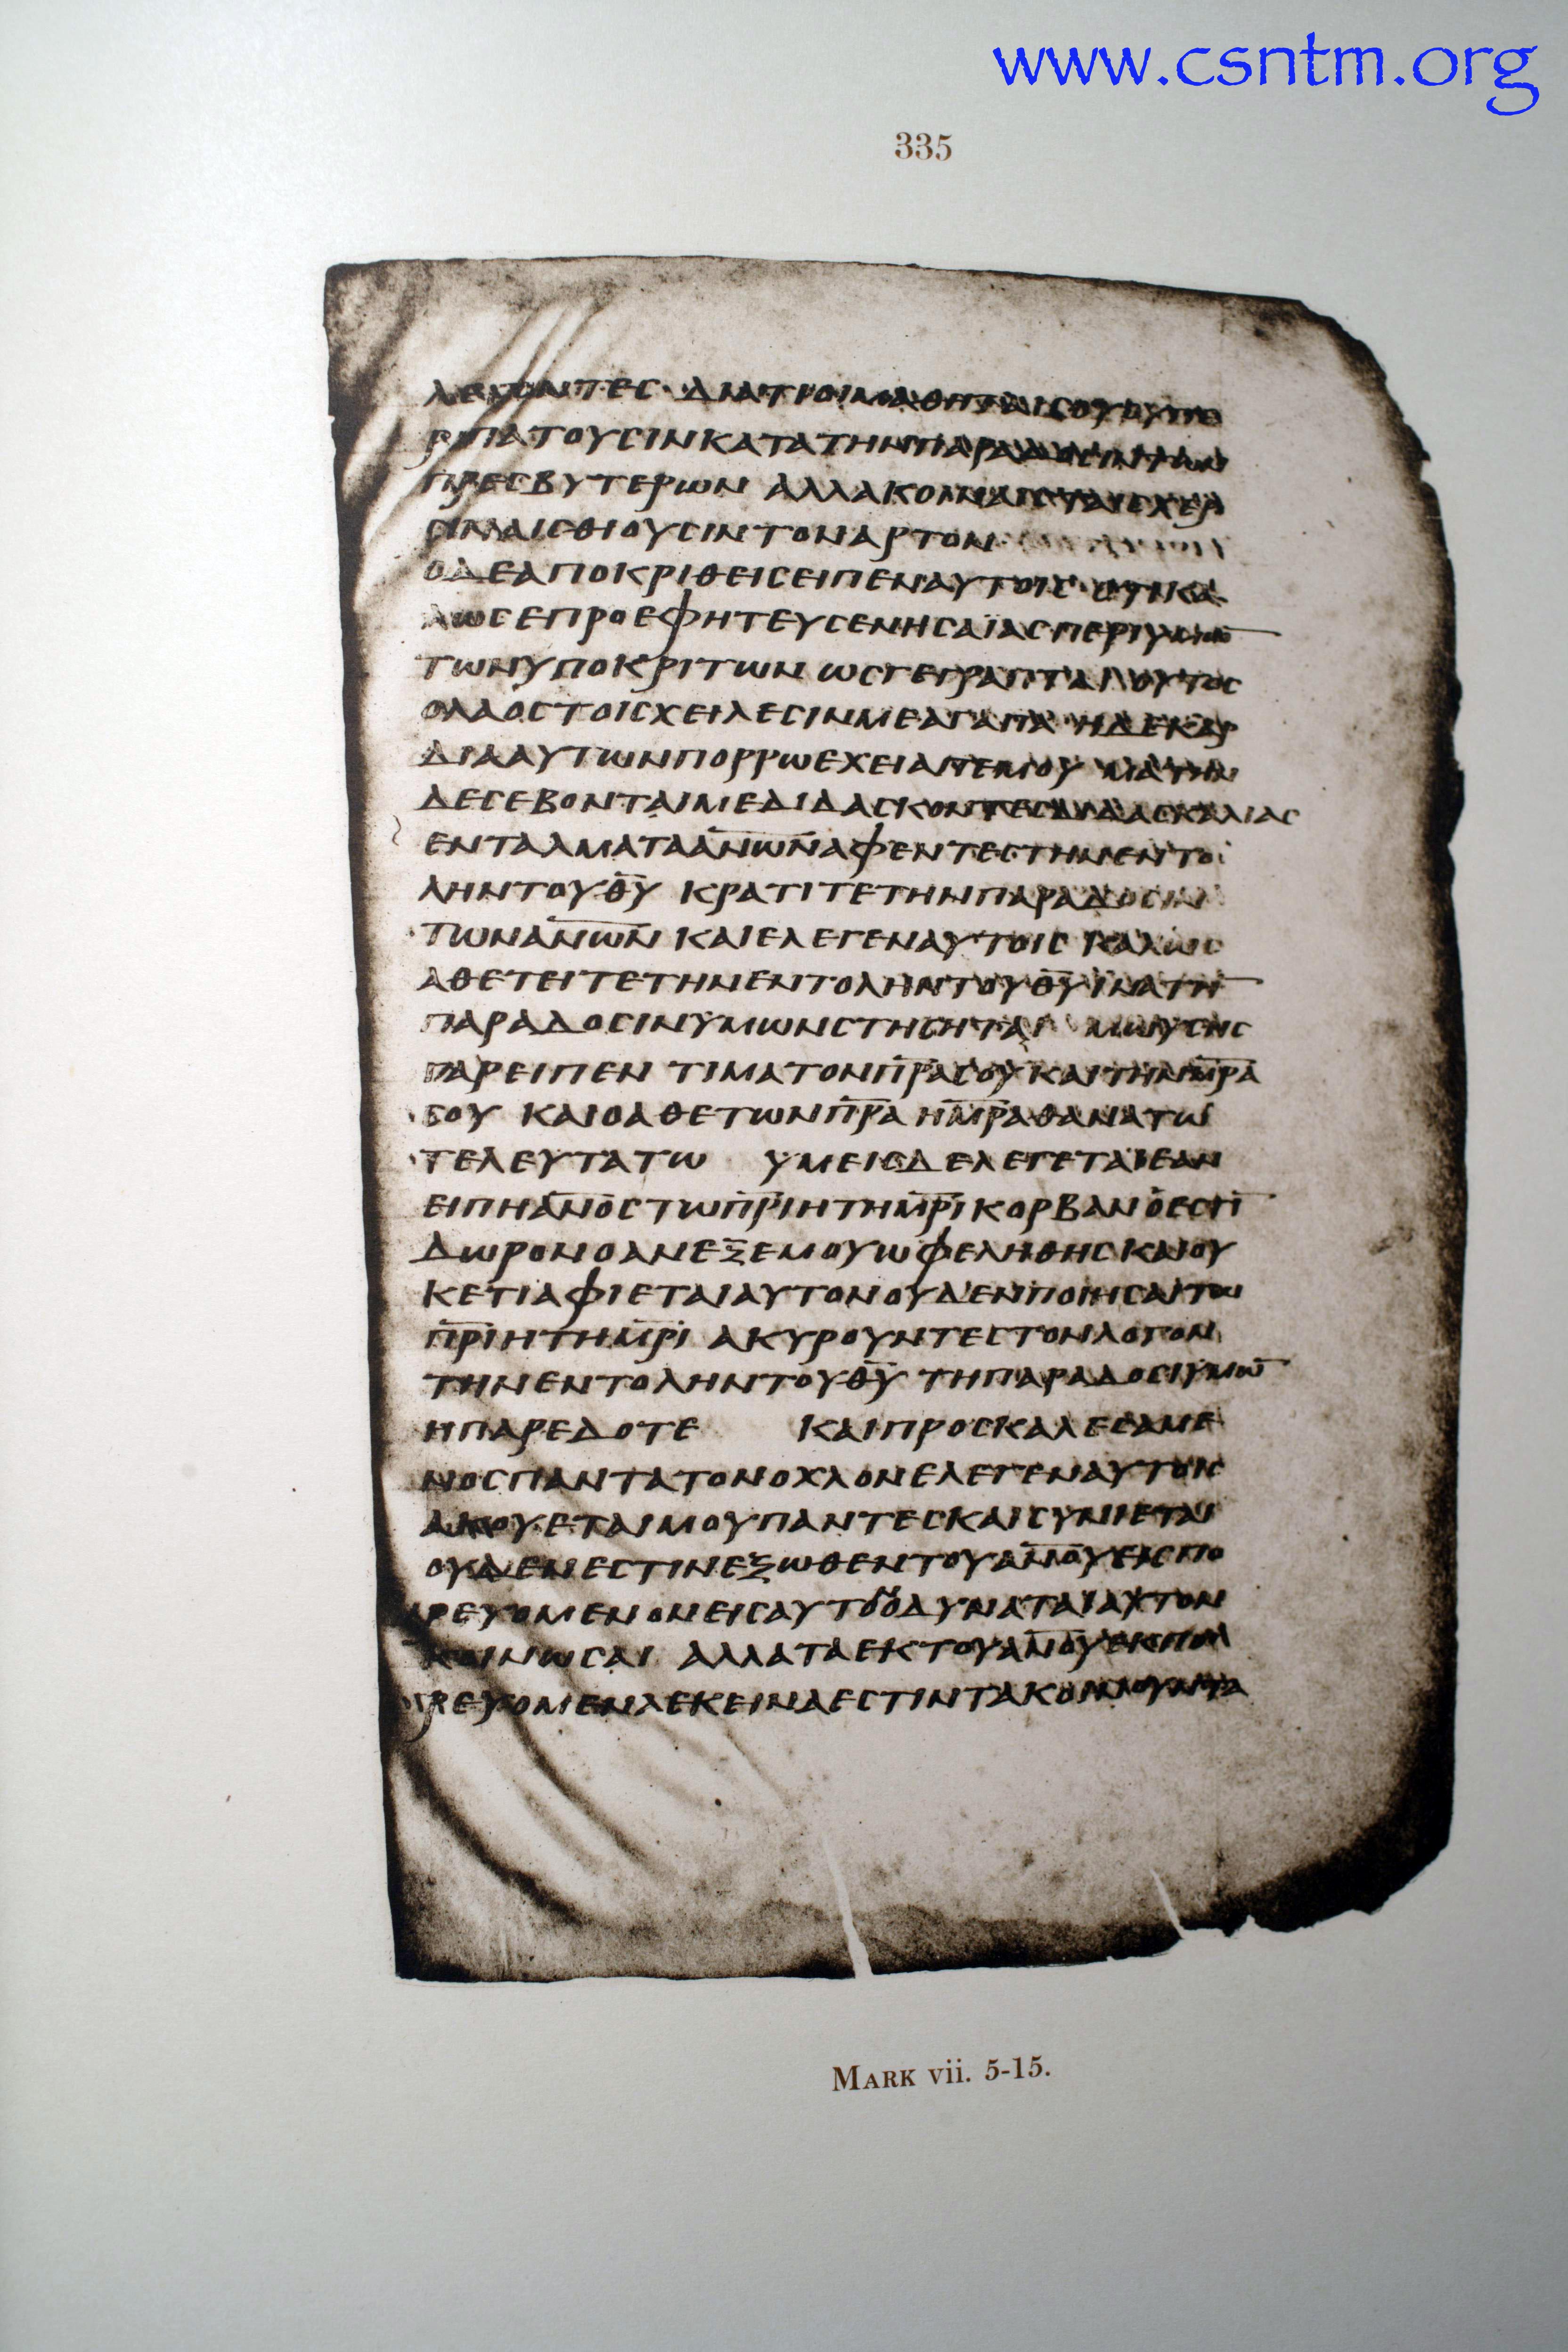 www.csntm.org
335
ΛΕΓΟΝΤΕC ΔΙΑΤΙ ΟΙΜΑΘΗΤΑΙCΟΥΟΥΠΕ
ΡΙΠΑΤΟΥCΙΝΚΑΤΑΤΗΝΠΑΡΑΔΟCΙΝΤΩΝ
ΠΡΕCΒΥΤΕΡΩΝ ΑΛΛΑΚΟΙΝΑΙCΤΑΙCΧΕΡ
CΙΝΑΙCΘΙΟΥCΙΝΤΟΝΑΡΤΟΝ
ΟΔΕΑΠΟΚΡΙΘΕΙCΕΙΠΕΝΑΥΤΟΙC ΟΤΙΚΑ
ΛΩCΕΠΡΟΕΦΗΤΕΥCΕΝΗCΑΪΑCΠΕΡΙΥΜΩ̅
ΤΩΝΥΠΟΚΡΙΤΩΝ ΩCΓΕΓΡΑΠΤΑΙ ΟΥΤΟC
ΟΛΑΟCΤΟΙCΧΕΙΛΕCΙΝΜΕΑΓΑΠΑ ΗΔΕΚΑΡ
ΔΙΑΑΥΤΩΝΠΟΡΡΩΕΧΕΙΑΠΕΜΟΥ ΜΑΤΗΝ
ΔΕCΕΒΟΝΤΑΙΜΕΔΙΔΑCΚΟΝΤΕCΔΙΔΑCΚΑΛΙΑC
ΕΝΤΑΛΜΑΤΑΑ̅Ν̅Ω̅Ν̅ΑΦΕΝΤΕCΤΗΝΕΝΤΟ
ΛΗΝΤΟΥΘ̅Υ̅ ΚΡΑΤΙΤΕΤΗΝΠΑΡΑΔΟCΙΝ
ΤΩΝΑ̅Ν̅Ω̅Ν̅ ΚΑΙΕΛΕΓΕΝΑΥΤΟΙC ΚΑΛΩC
ΑΘΕΤΕΙΤΕΤΗΝΕΝΤΟΛΗΝΤΟΥΘ̅Υ̅ ΙΝΑΤΗ̅
ΠΑΡΑΔΟCΙΝΥΜΩΝCΤΗCΗΤΑΙ ΜΩΥCΗC
ΓΑΡΕΙΠΕΝ ΤΙΜΑΤΟΝΠ̅Ρ̅Α̅CΟΥ ΚΑΙΤΗΝΜ̅Ρ̅Α̅
CΟΥ ΚΑΙΟΑΘΕΤΩΝΠ̅Ρ̅Α̅ ΗΜ̅Ρ̅Α̅ΘΑΝΑΤΩ
ΤΕΛΕΥΤΑΤΩ ΥΜΕΙCΔΕΛΕΓΕΤΑΙΕΑΝ
ΕΙΠΗΑ̅Ν̅Ο̅C̅ΤΩΠ̅Ρ̅Ι̅ΗΤΗΜ̅Ρ̅Ι̅ΚΟΡΒΑΝΟΕCΤΙ̅
ΔΩΡΟΝΟΑΝΕΞΕΜΟΥΩΦΕΛΗΘΗC ΚΑΙΟΥ
ΚΕΤΙΑΦΙΕΤΑΙΑΥΤΟΝΟΥΔΕΝΠΟΙΗCΑΙΤΩ
Π̅Ρ̅Ι̅ΗΤΗΜ̅Ρ̅Ι̅ ΑΚΥΡΟΥΝΤΕCΤΟΝΛΟΓΟΝ
ΤΗΝΕΝΤΟΛΗΝΤΟΥΘ̅Υ̅ ΤΗΠΑΡΑΔΟCΙΥΜΩ̅
ΗΠΑΡΕΔΟΤΕ ΚΑΙΠΡΟCΚΑΛΕCΑΜΕ
ΝΟCΠΑΝΤΑΤΟΝΟΧΛΟΝΕΛΕΓΕΝΑΥΤΟΙC
ΑΚΟΥΕΤΑΙΜΟΥΠΑΝΤΕCΚΑΙCΥΝΙΕΤΑΙ
ΟΥΔΕΝΕCΤΙΝΕΞΩΘΕΝΤΟΥΑ̅Ν̅Ο̅Υ̅ΕΙCΠΟ
ΡΕΥΟΜΕΝΟΝΕΙCΑΥΤΟ ΟΔΥΝΑΤΑΙΑΥΤΟΝ
ΚΟΙΝΩCΑΙ ΑΛΛΑΤΑΕΚΤΟΥΑ̅Ν̅Ο̅Υ̅ΕΚΠΟ
ΡΕΥΟΜΕΝΑΕΚΕΙΝΑΕCΤΙΝΤΑΚΟΙΝΟΥΝΤΑ
MARK vii. 5-15.